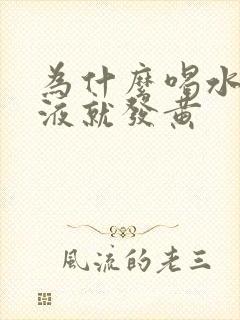 為什麼喝水
液就發黃
風流的老三